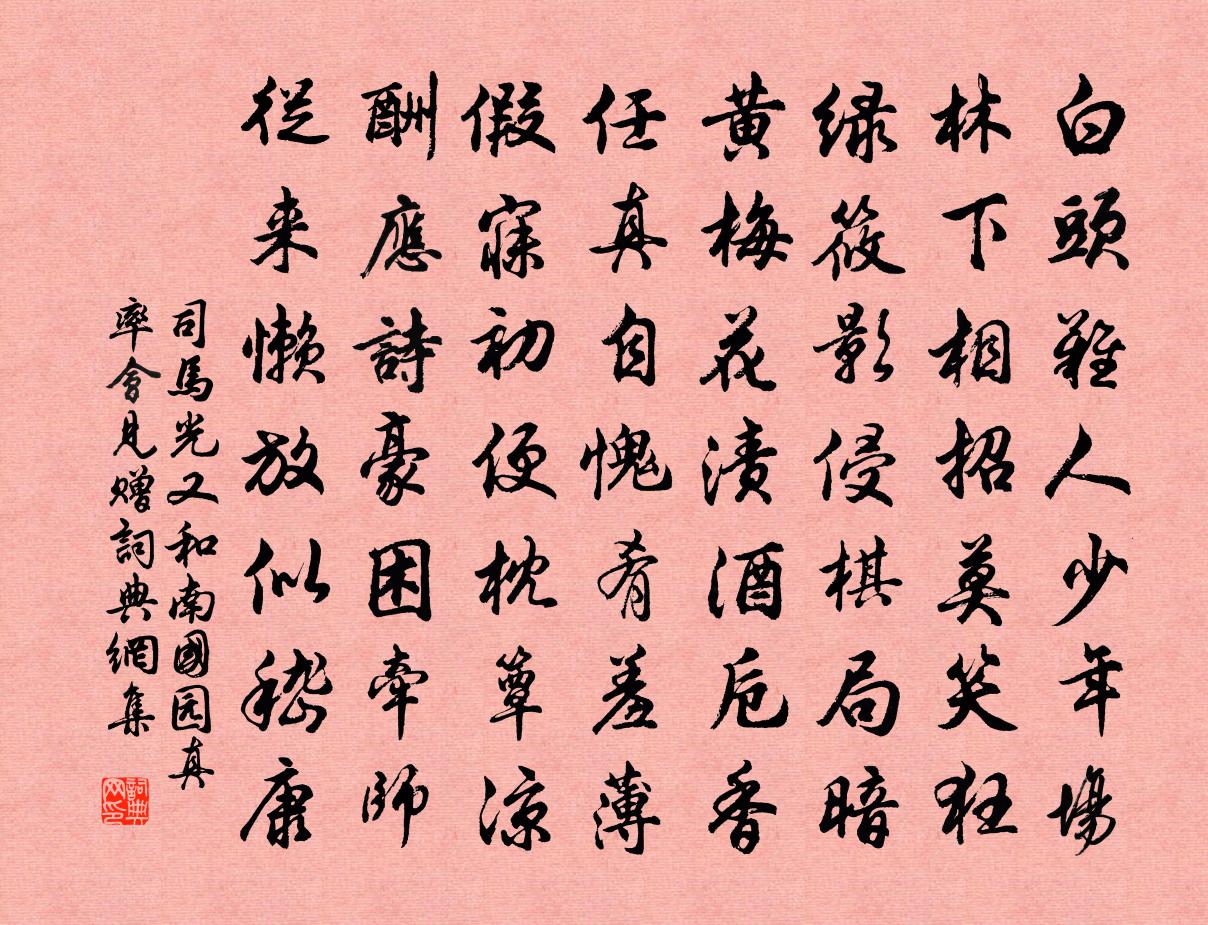 白頭難人少年場
林下相招莫笑狂
緑筱影侵棋局暗
黄梅花漬酒卮香
任真自愧肴羞薄
假寐初便枕簟涼
酬應詩豪困牽師
從来懶放似嵇康
司馬光又和南國园真
率會見贈詞典網集
詞典网印